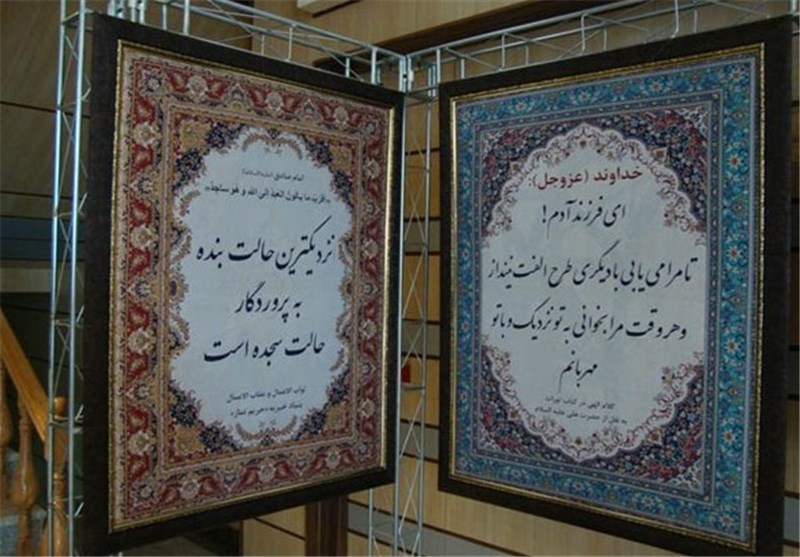 خداوند (عزوجل):
ای فرزند آدم!
تا مرا می یابی با دیگری طرح الفت نینداز
و هر وقت مرا بخوانی به تو نزدیک و با تو
مهربانم
کلام الهی در کتاب تورات
به نقل از حضرت علی علیه السلام
امام صادق
«اقرب ما یکون العبد الی الله و هو ساجد»
نزدیکترین حالت بنده
به پروردگار
حالت سجده است
ثواب الاعمال و عقاب الاعمال
بنیاد خیریه «حریم نماز»